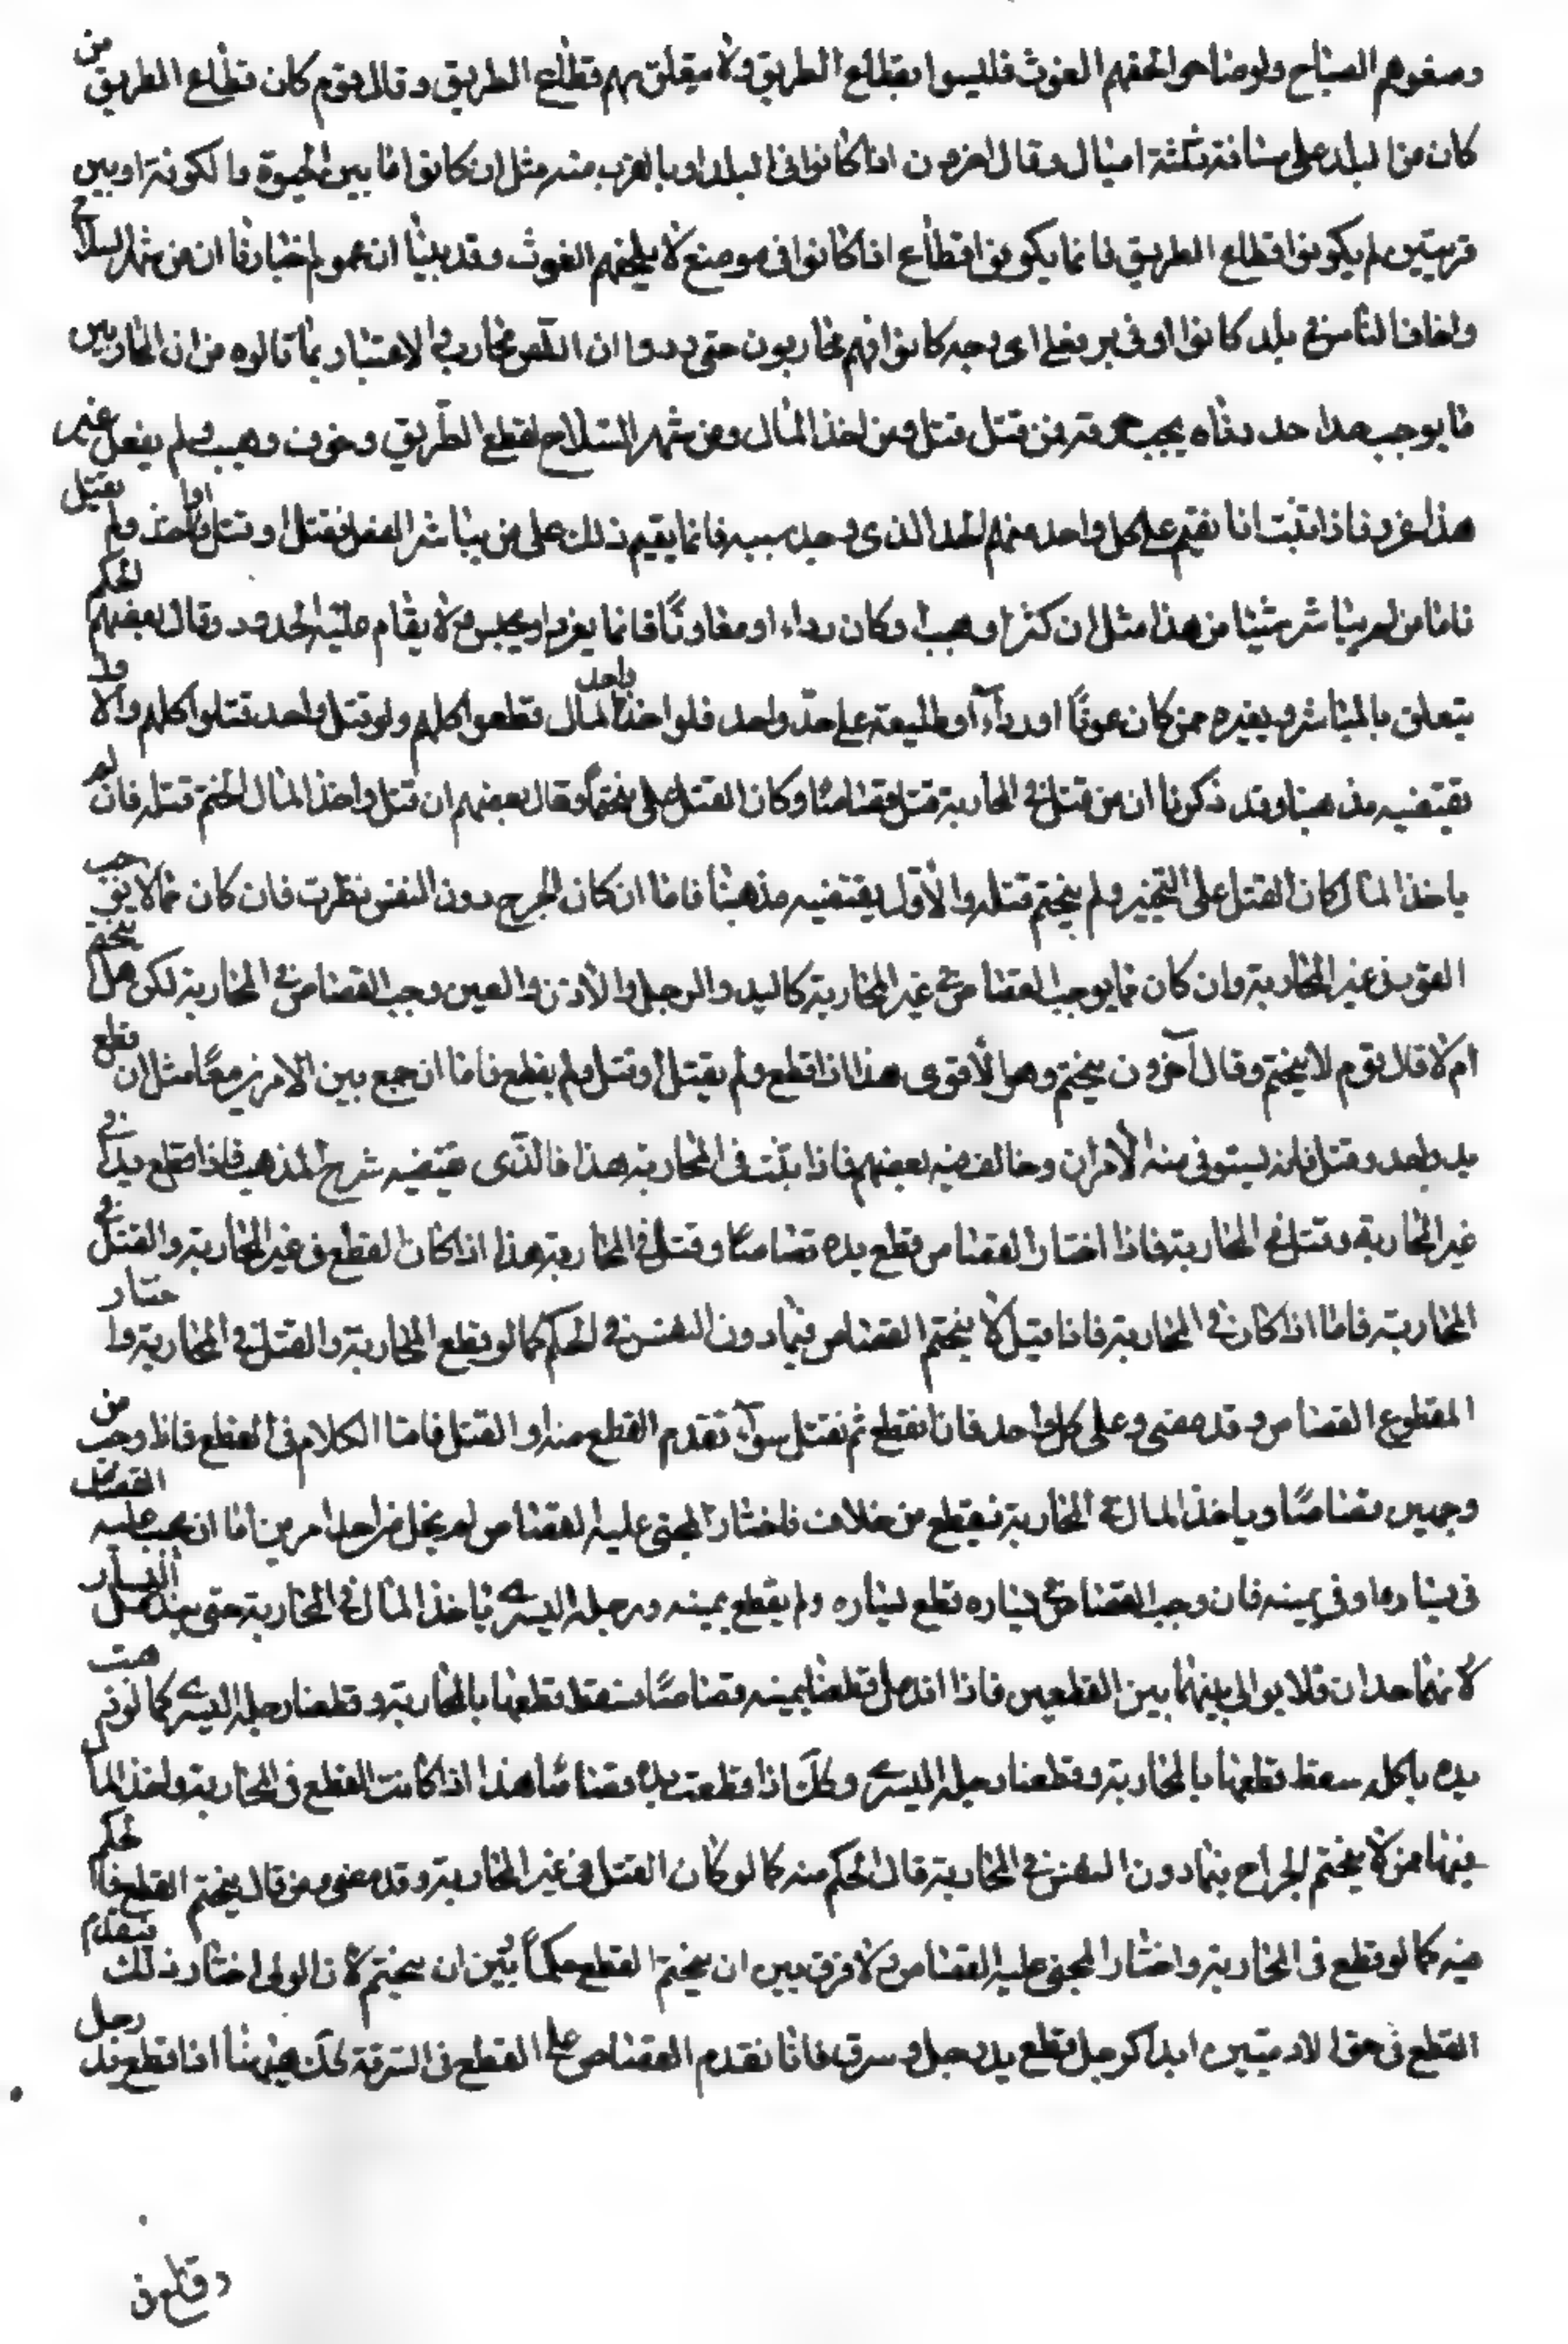 وصغوهم الصياح ولو صاحوا لحقهم الغوث فليسوا بقطاع الطريق ولا يتعلق بهم قطاع الطريق وقال قوم كان قطاع الطريق من
كان من البلد على مسافة ثلثة اميال وقال اخرون اذا كانوا في البلد او بالقرب منه مثل ان كانوا ما بين الحيوة والكوفة او بين
قريتين لم يكونوا قطاع الطريق فانما يكونوا قطاع اذا كانوا في موضع لا يلحقهم الغوث وقد بينا ان عموم اخبارنا ان من شهر السلاح
واخاف الناس في بلد كانوا او في بر فعلى اي وجه كانوا فهم محاربون حتى رووا ان اللص محارب ولا اعتبار بما قالوه من ان المحاربين
ما يوجب هذا حد دناه يجب فمن قتل قتل ومن اخذ المال ومن شهر السلاح لقطع الطريق وخوف وهيب ولم يفعل غير
هذا عزر فاذا ثبت انا نقيم على كل واحد منهم الحد الذي وجد سببه فانما يقيم ذلك على من يباشر الفعل فقتل او قتل واخذ او اخذ ولم يقتل
فاما من لم يباشر شيئا من هذا مثل ان كثر او هيب او كان ردا او معاونا فانما يعزر او يحبس ولا يقام عليه الحدود وقال بعضهم الحكم
يتعلق بالمباشر وبغيره ممن كان عونا او ردآء او طليعة على حد واحد فلو اخذ واحد المال قطعوا كلهم ولو قتل واحد قتلوا كلهم والاول
يقتضيه مذهبنا وقد ذكرنا ان من قتل في المحاربة قتل قصاصا وكان القتل على منحتما وقال بعضهم ان قتل واخذ المال انحتم قتله فان لم
ياخذ المال كان القتل على التخيير ولم ينحتم قتله والاول يقتضيه مذهبنا فاما ان كان الجرح دون النفس نظرت فان كان مما لا يوجب
القود في غير المحاربة وان كان مما يوجب القصاص في غير المحاربة كاليد والرجل والاذن والعين وجب القصاص في المحاربة لكن هل ينحتم
ام لا قال قوم لا ينحتم وقال آخرون ينحتم وهو الاقوى هذا اذا قطع ولم يقتل او قتل ولم يقطع فاما ان جمع بين الامرين معا مثل ان قطع
يد واحد وقتل فانه يستوفى منه الامران وخالف فيه بعضهم فاذا ثبت في المحاربة هذا فالذي يقتضيه شرح المذهب فاذا قطع يدا في
غير المحاربة وقتل في المحاربة فاذا اختار القصاص قطع يده قصاصا وقتل في المحاربة هذا اذا كان القطع في غير المحاربة والقتل في
المحاربة فاما اذا كان في المحاربة فاذا قيل لا ينحتم القصاص فيما دون النفس في الحكم كما لو قطع المحاربة والقتل في المحاربة واختار
المقطوع القصاص وقد مضى وعلى كل واحد فانا نقطع ثم نقتل سوآء تقدم القطع منه او القتل فاما الكلام في القطع فاذا وجب من
وجهين قصاصا وياخذ المال في المحاربة فيقطع من خلاف فاختار المجنى عليه القصاص لم يخل من احد امرين اما ان يجب عليه القصاص
في يساره او في يمينه فان وجب القصاص في يساره قطع يساره ولم يقطع يمينه ورجله اليسرى باخذ المال في المحاربة حتى يندمل اليسار
لانهما حدان فلا يوالى بينهما بين القطعين فاذا اندمل قطعنا يمينه قصاصا سقط قطعها بالمحاربة وقطعنا رجله اليسرى كما لو ذهبت
يده باكله سقط قطعها بالمحاربة وقطعنا رجله اليسرى وكك اذا قطعت يده قصاصا هذا اذا كانت القطع في المحاربة واخذ المال
فيها من لا ينحتم الجراح فيما دون النفس في المحاربة قال الحكم منه كما لو كان القتل في غير المحاربة وقد مضى ومن قال ينحتم القطع فالحكم
فيه كما لو قطع في المحاربة واختار المجنى عليه القصاص ولا فرق بين ان ينحتم القطع حكما بين ان ينحتم لان الولي اختار ذلك فيقدم
القطع في حق الادميين ابدا كرجل قطع يد رجل وسرق فانا نقدم القصاص على القطع في السرقة كك ههنا اذا قطع يد رجل
وقطع في